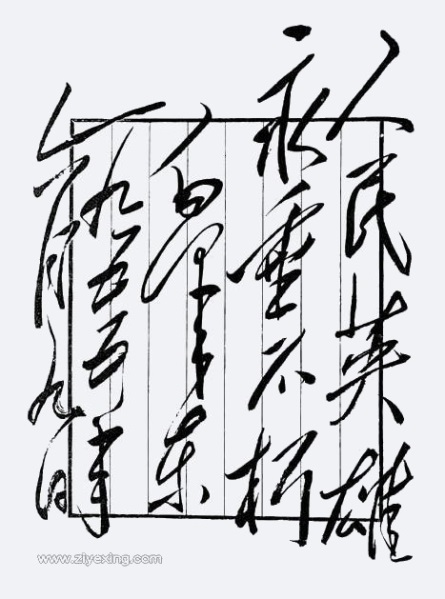 人民英雄
永垂不朽
毛泽东
一九五五年
六月九日
www.ziyexing.com